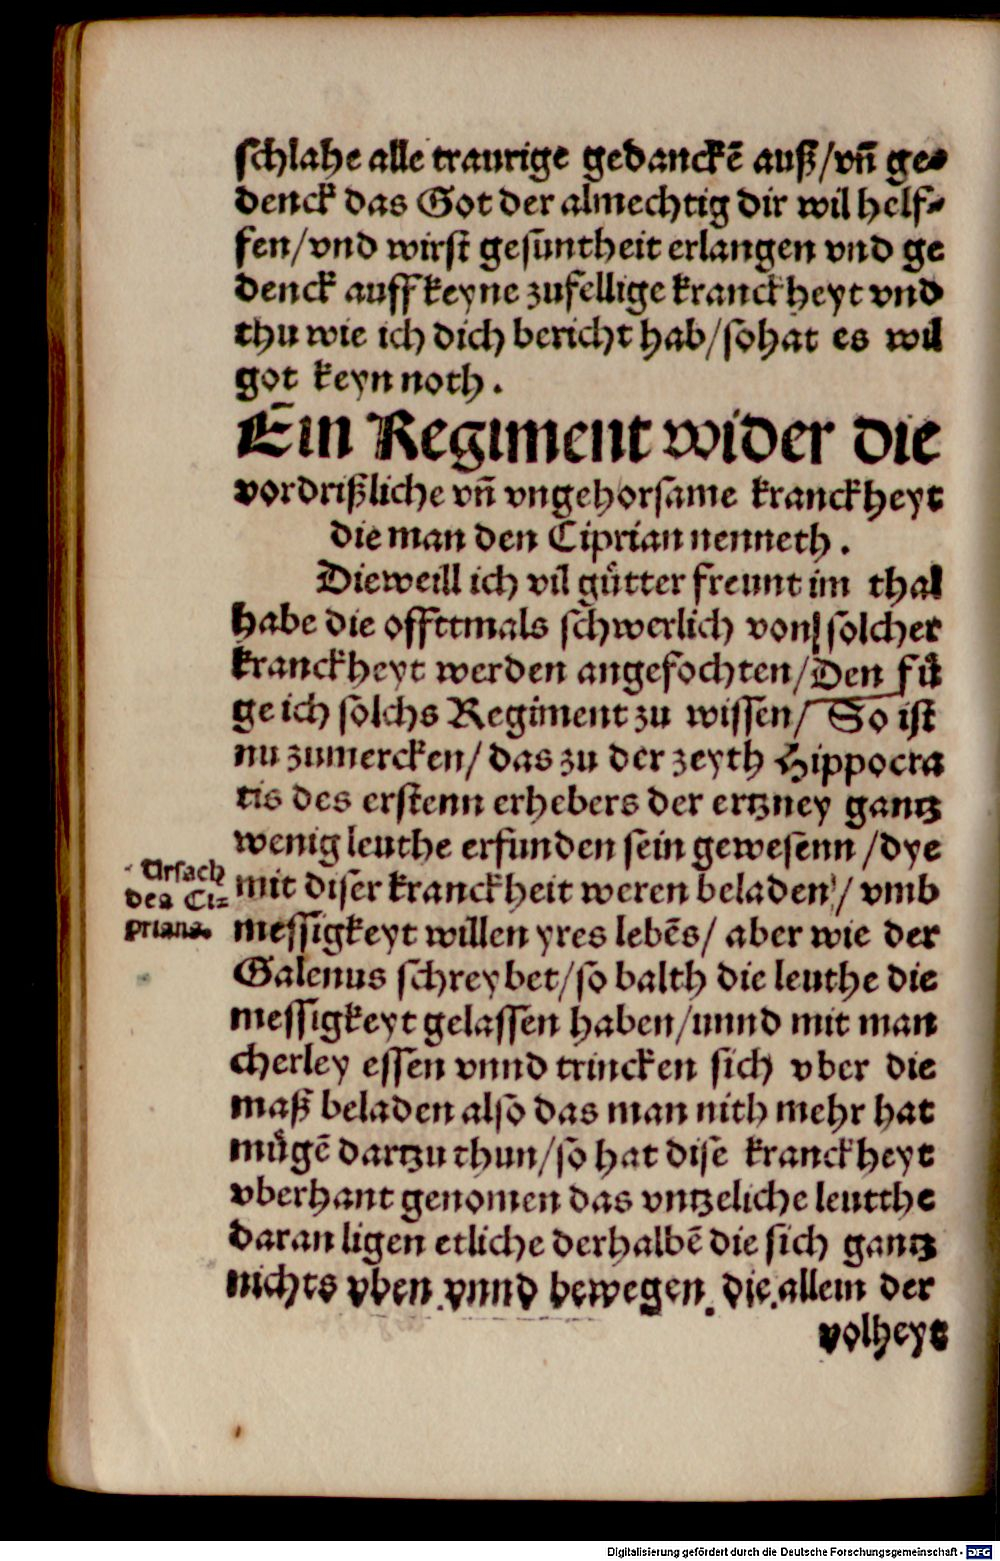 schlahe alle traurige gedanckē auß/vn̄ ge⸗
denck das Got der almechtig dir wil helf⸗
fen/vnd wirst gesuntheit erlangen vnd ge
denck auff keyne zufellige kranckheyt vnd
thu wie ich dich bericht hab/so hat es wil
got keyn noth.
Ein Regiment wider die
vordrißliche vn̄ vngehorsame kranckheyt
die man den Ciprian nenneth.
Dieweill ich vil gůtter freunt im thal
habe die offttmals schwerlich von solcher
kranckheyt werden angefochten/Den fů
ge ich solchs Regiment zu wissen/ So ist
nu zumercken/das zu der zeyth Hippocra
tis des erstenn erhebers der ertzney gantz
wenig leuthe erfunden sein gewesenn/dye
Ursach
des Ci⸗
prians.
mit diser kranckheit weren beladen/ vmb
messigkeyt willen yres lebēs/ aber wie der
Galenus schreybet/so balth die leuthe die
messigkeyt gelassen haben/unnd mit man
cherley essen vnnd trincken sich vber die
maß beladen also das man nith mehr hat
můgē dartzu thun/so hat dise kranckheyt
vberhant genomen das vntzeliche leutthe
daran ligen etliche derhalbē die sich gantz
nichts vben vnnd bewegen die allein der
volheyt
Digitalisierung gefördert durch die Deutsche Forschungsgemeinschaft - DFG